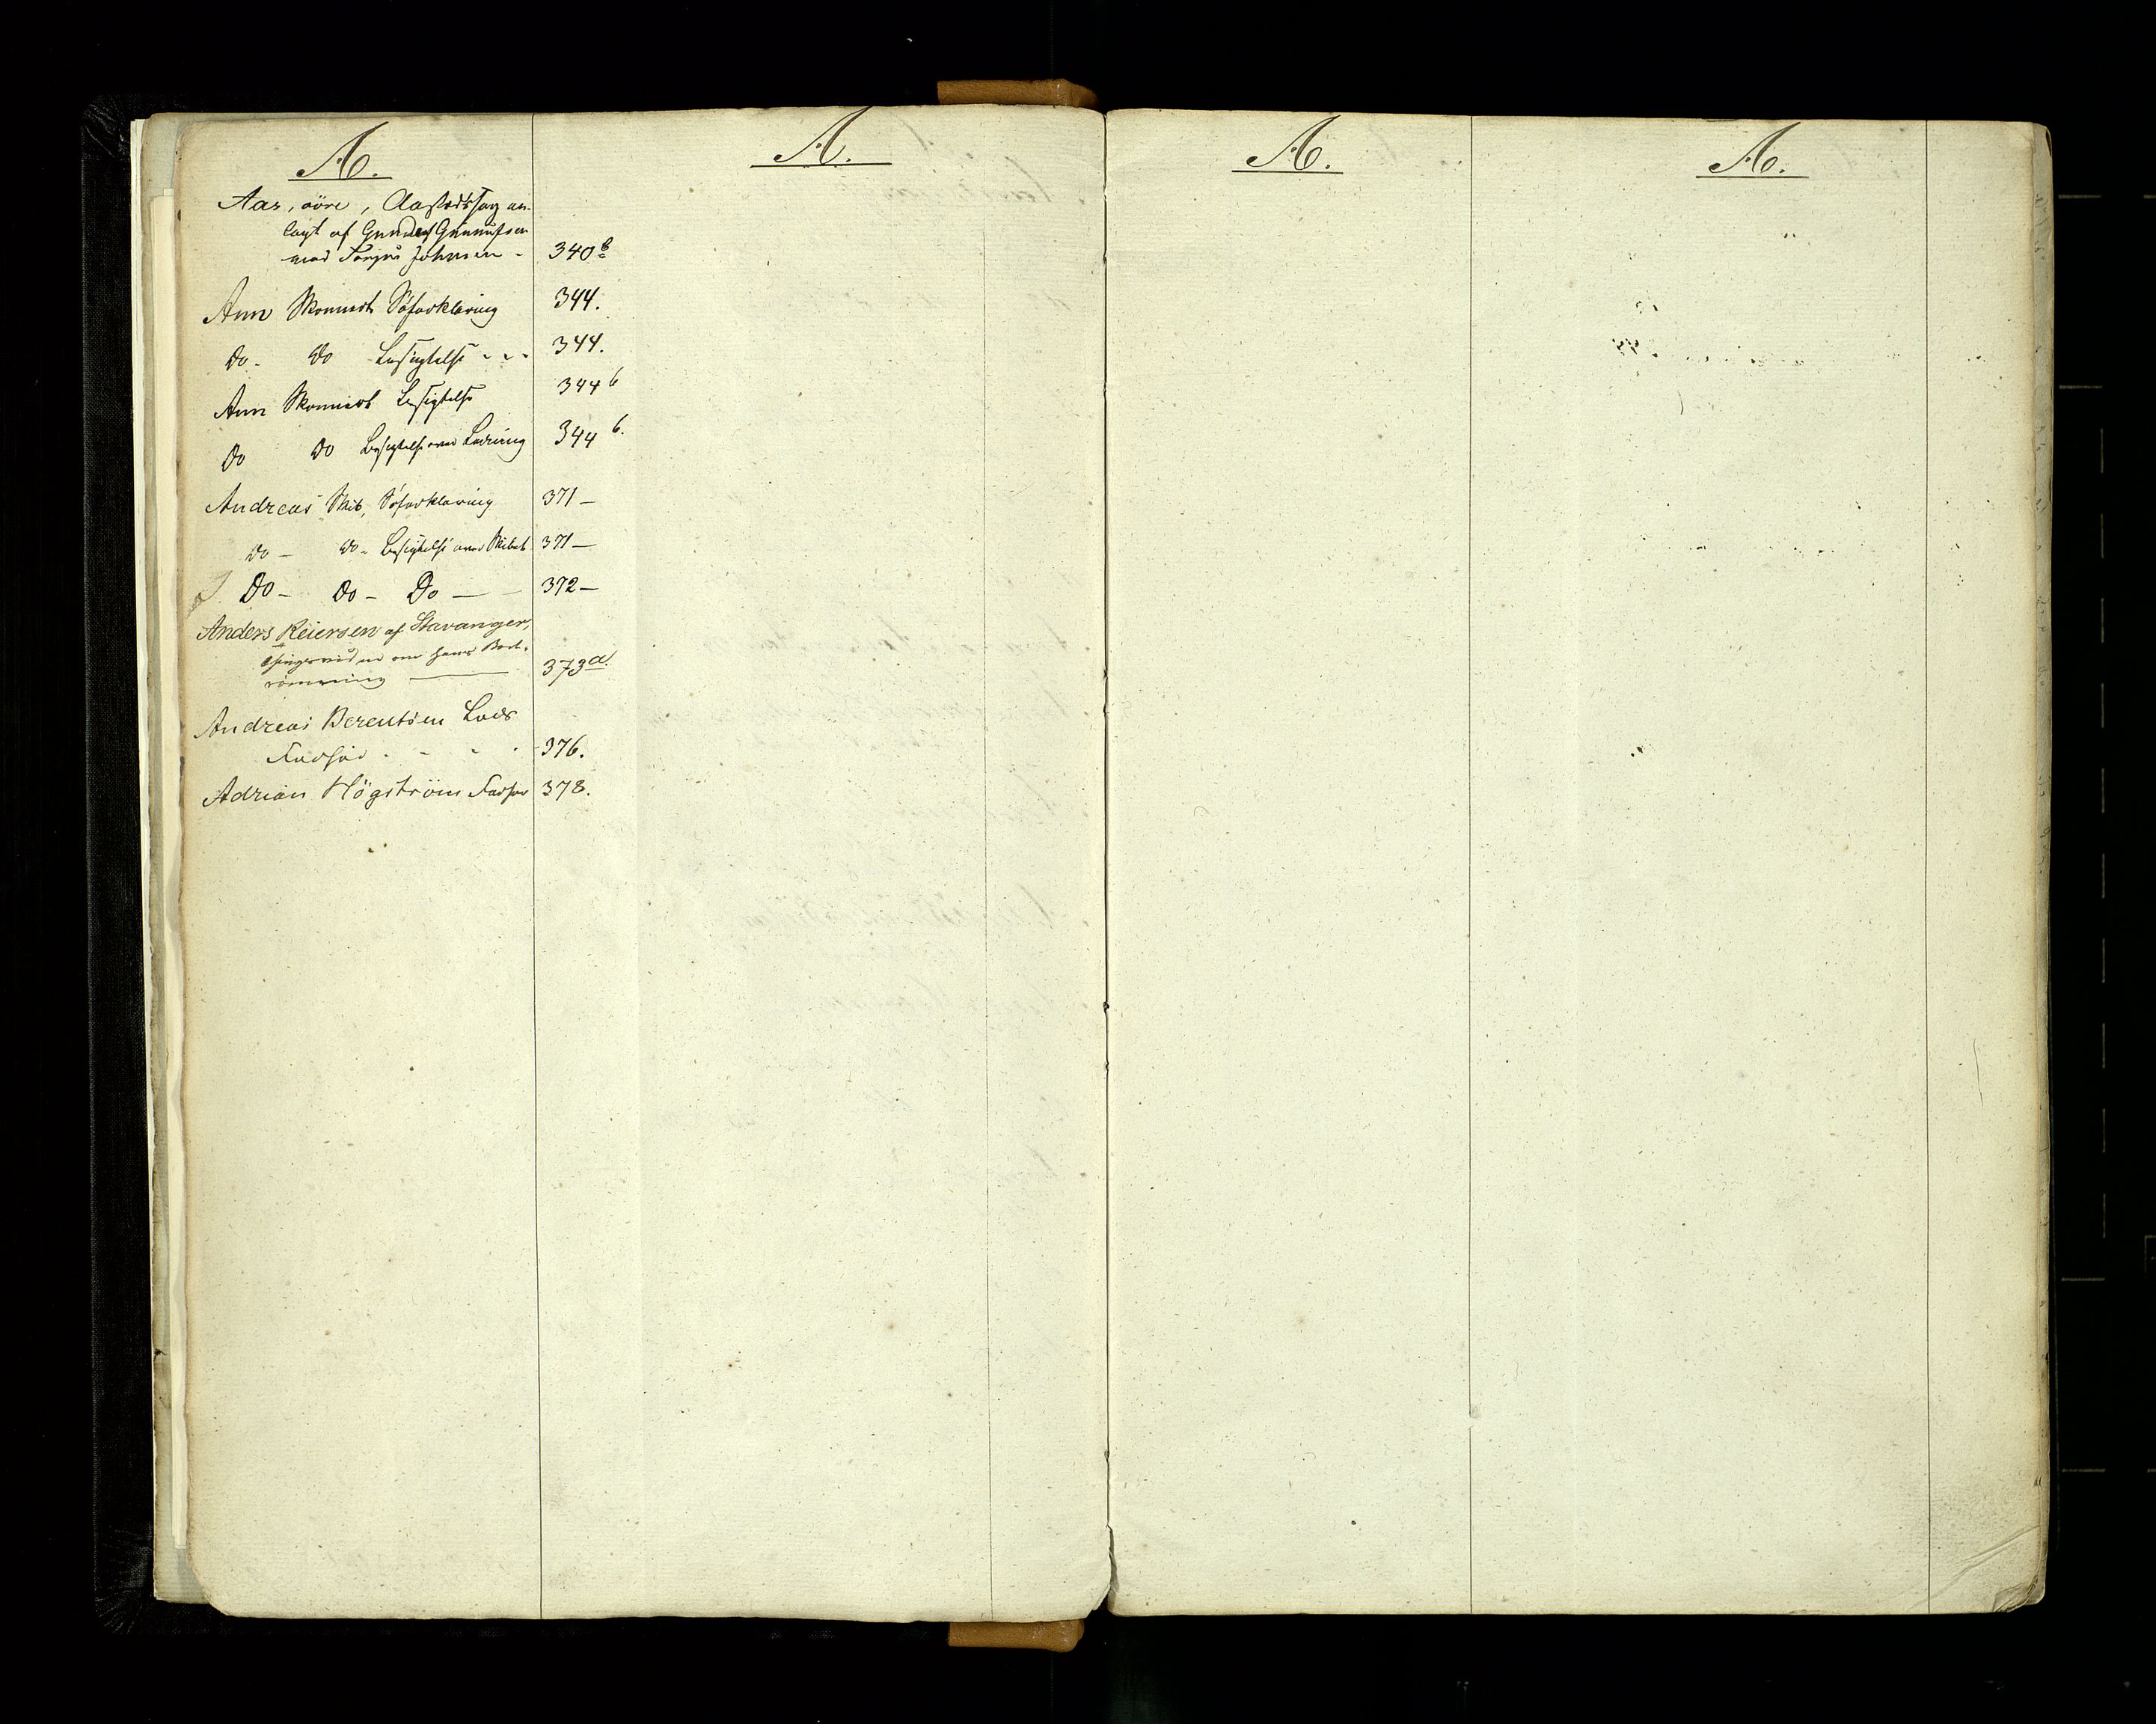 A.
Aas, övre, Aastedssag an-
lagt af Gunder Gunnufsen
mod Torjus Johnsen - 340 b
Ann Skonnert Söforklaring 344.
Do - Do Besigtelse - - - 344.
Ann Skonnert Besigtelse 344 b
Do Do Besigtelse over Ladning 344 b.
Andreas Skib, Söforklaring 371 -
Do - Do - Besigtelse over Skibet 371 -
Do - Do - Do - 372 -
Anders Reiersen af Stavanger,
Thingsvidne om hans Bort-
römning 373 a.
Andreas Berentsen Lods
Forhör - - - 376.
Adrian Högström Forhör 378.
A.
A.
A.